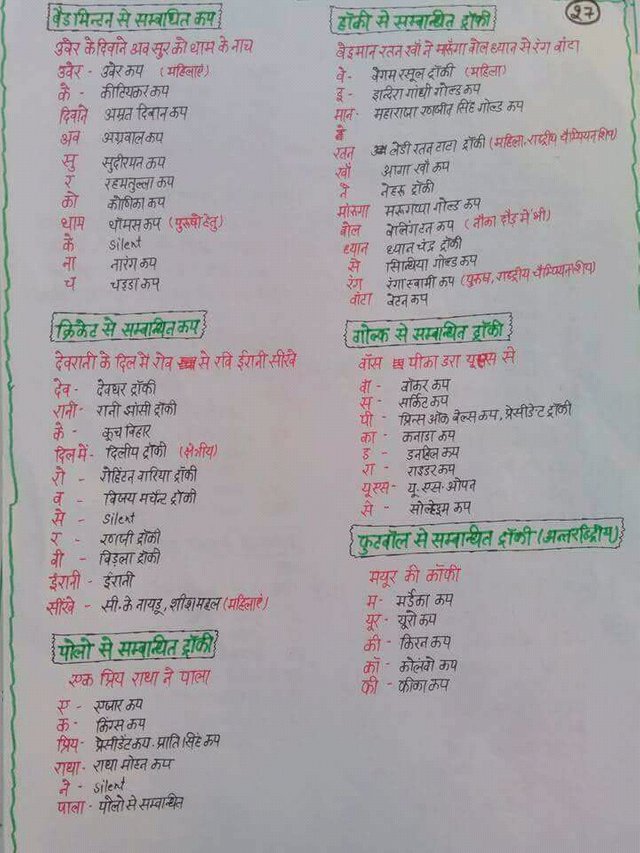 27
बैडमिन्टन से सम्बंधित कप
उबेर के दिवाने अब सुर को थाम के नाच
उबेर - उबेर कप (महिलाएं)
के - कीटियकर कप
दिवाने अमृत दिवान कप
अब अग्रवाल कप
सु सुदीरमन कप
र रहमतुल्ला कप
को कोणिका कप
थाम थॉमस कप (पुरुषो हेतु)
के silent
ना नारंग कप
च चड्डा कप
क्रिकेट से सम्बन्धित कप
देवरानी के दिल में रोव से रवि ईरानी सीखे
देव - देवधर ट्रॉफी
रानी - रानी झांसी ट्रॉफी
के - कूच बिहार
दिल में - दिलीप ट्रॉफी (क्षेत्रीय)
रो - रोहिंटन बारिया ट्रॉफी
व - विजय मर्चेन्ट ट्रॉफी
से - silent
र - रणजी ट्रॉफी
वी - बिड़ला ट्रॉफी
ईरानी - ईरानी
सीखे - सी.के नायडू, शीशमहल (महिलाएं)
पोलो से सम्बन्धित ट्रॉफी
एक प्रिय राधा ने पाला
ए - एजार कप
क - किंग्स कप
प्रिय - प्रेसीडेंट कप. प्राति सिंह कप
राधा - राधा मोहन कप
ने - silent
पाला - पोलो से सम्बन्धित
हॉकी से सम्बन्धित ट्रॉफी
बेइमान रतन खाँ ने मरूगा बोल ध्यान से रंग बांटा
बे - बेगम रसूल ट्रॉफी (महिला)
इ - इन्दिरा गांधी गोल्ड कप
मान - महाराजा रणजीत सिंह गोल्ड कप
रतन लेडी रतन टाटा ट्रॉफी (महिला, राष्ट्रीय चैम्पियनशिप)
खाँ आगा खाँ कप
ने नेहरू ट्रॉफी
मोरुगा मरूगप्पा गोल्ड कप
बोल वेलिंगटन कप (नौका दौड़ में भी)
ध्यान ध्यान चंद्र ट्रॉफी
से सिन्धिया गोल्ड कप
रंग रंगास्वामी कप (पुरुष, राष्ट्रीय चैम्पियनशिप)
बांटा बेटन कप
गोल्फ से सम्बन्धित ट्रॉफी
वॉस पीका डरा यूएस से
वा - वॉकर कप
स - सर्किट कप
पी - प्रिन्स ऑफ वेल्स कप, प्रेसीडेन्ट ट्रॉफी
का - कनाडा कप
ड - डनहिल कप
रा - राइडर कप
यूएस - यू.एस.ओपन
से - सोल्हेइम कप
फुटबॉल से सम्बन्धित ट्रॉफी (अन्तर्राष्ट्रीय)
मयूर की कॉफी
म - मर्डेका कप
यूर - यूरो कप
की - किरन कप
कॉ - कोलंबो कप
फी - फीफा कप